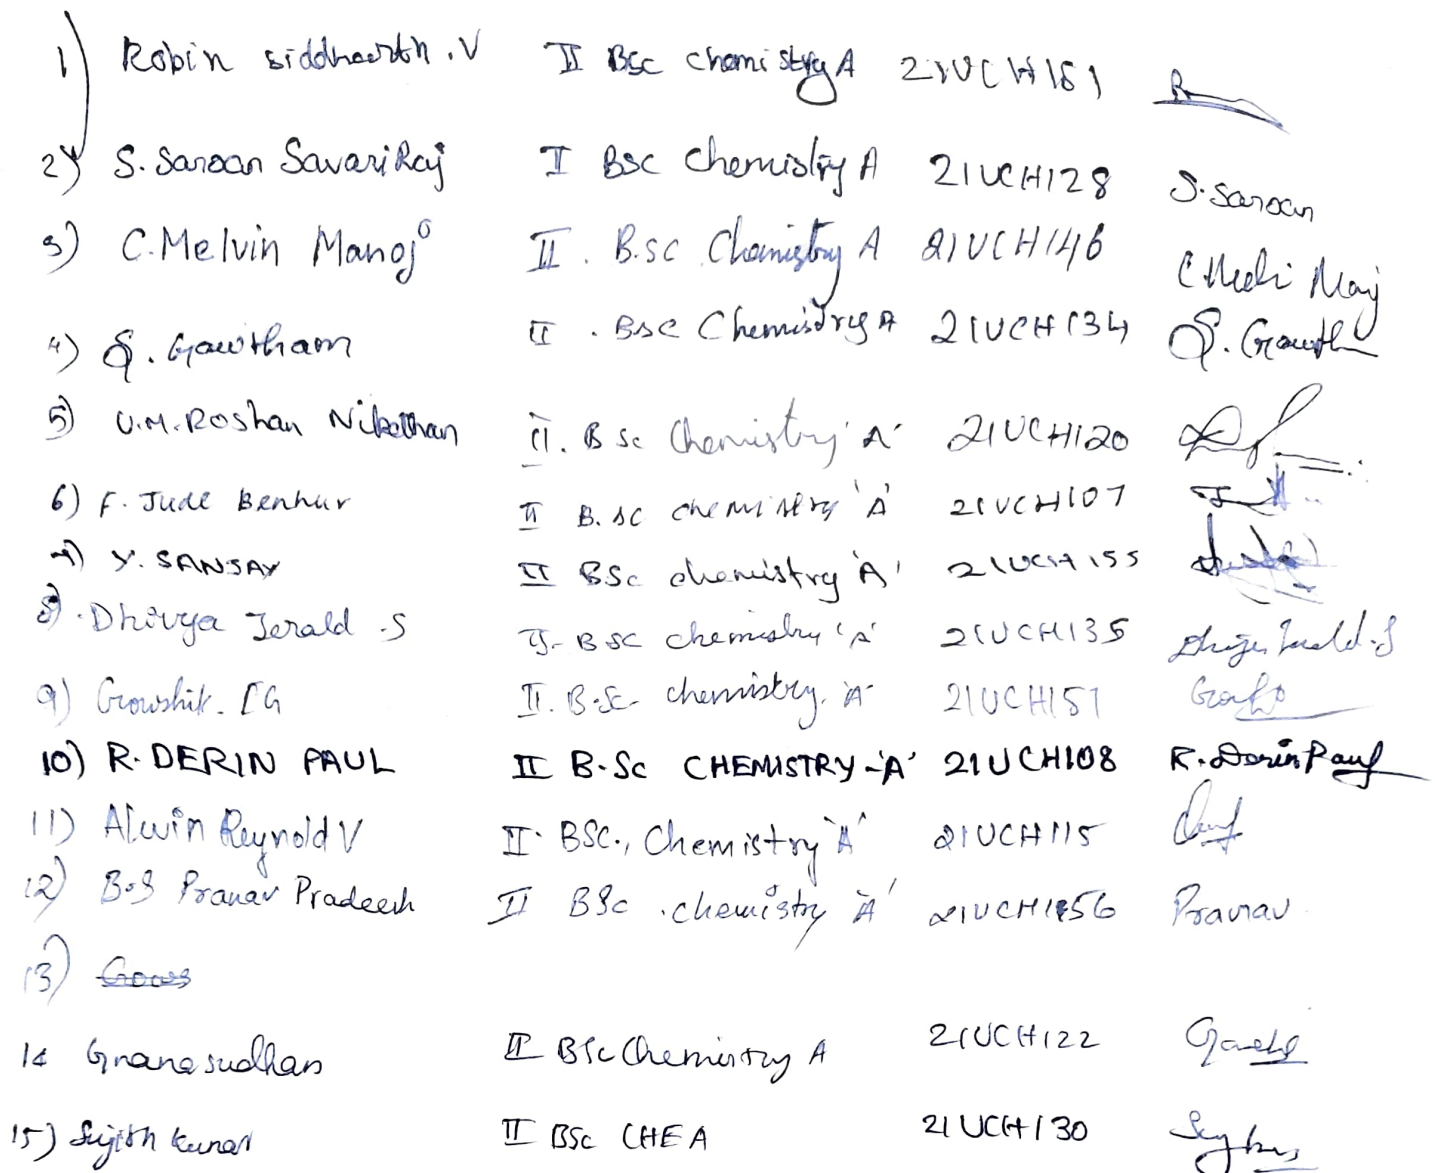 1) Robin siddhaarth .V II BSc chemistry A 21UCH161
2) S. Saroan SavariRaj I BSC Chemistry A 21UCH128 S.Saroan
3) C.Melvin Manoj II . B.SC Chemistry A 21UCH146
4) S. Gowtham II . BSC Chemistry A 21UCH134 S. Gowth
5) U.M.Roshan Nikethan II. B Sc Chemistry 'A' 21UCH120
6) F. Jude Benhur II B.SC chemistry 'A' 21UCH107
7) Y. SANJAY II BSc chemistry 'A' 21UCH155
8) Dhivya Jerald .S II- BSC chemistry 'A' 21UCH135
9) Gowshik. II. B.Sc. chemistry. 'A' 21UCH151
10) R. DERIN PAUL II B.Sc CHEMISTRY -'A' 21UCH108 R. Derin Paul
11) Alwin Reynold V II BSC., Chemistry 'A' 21UCH115
12) B.S Pranav Pradeesh II BSc . chemistry 'A' 21UCH156 Pranav
13)
14 Gnanasudhan II BSc Chemistry A 21UCH122
15) Sujith kumar II BSc CHE A 21UCH130